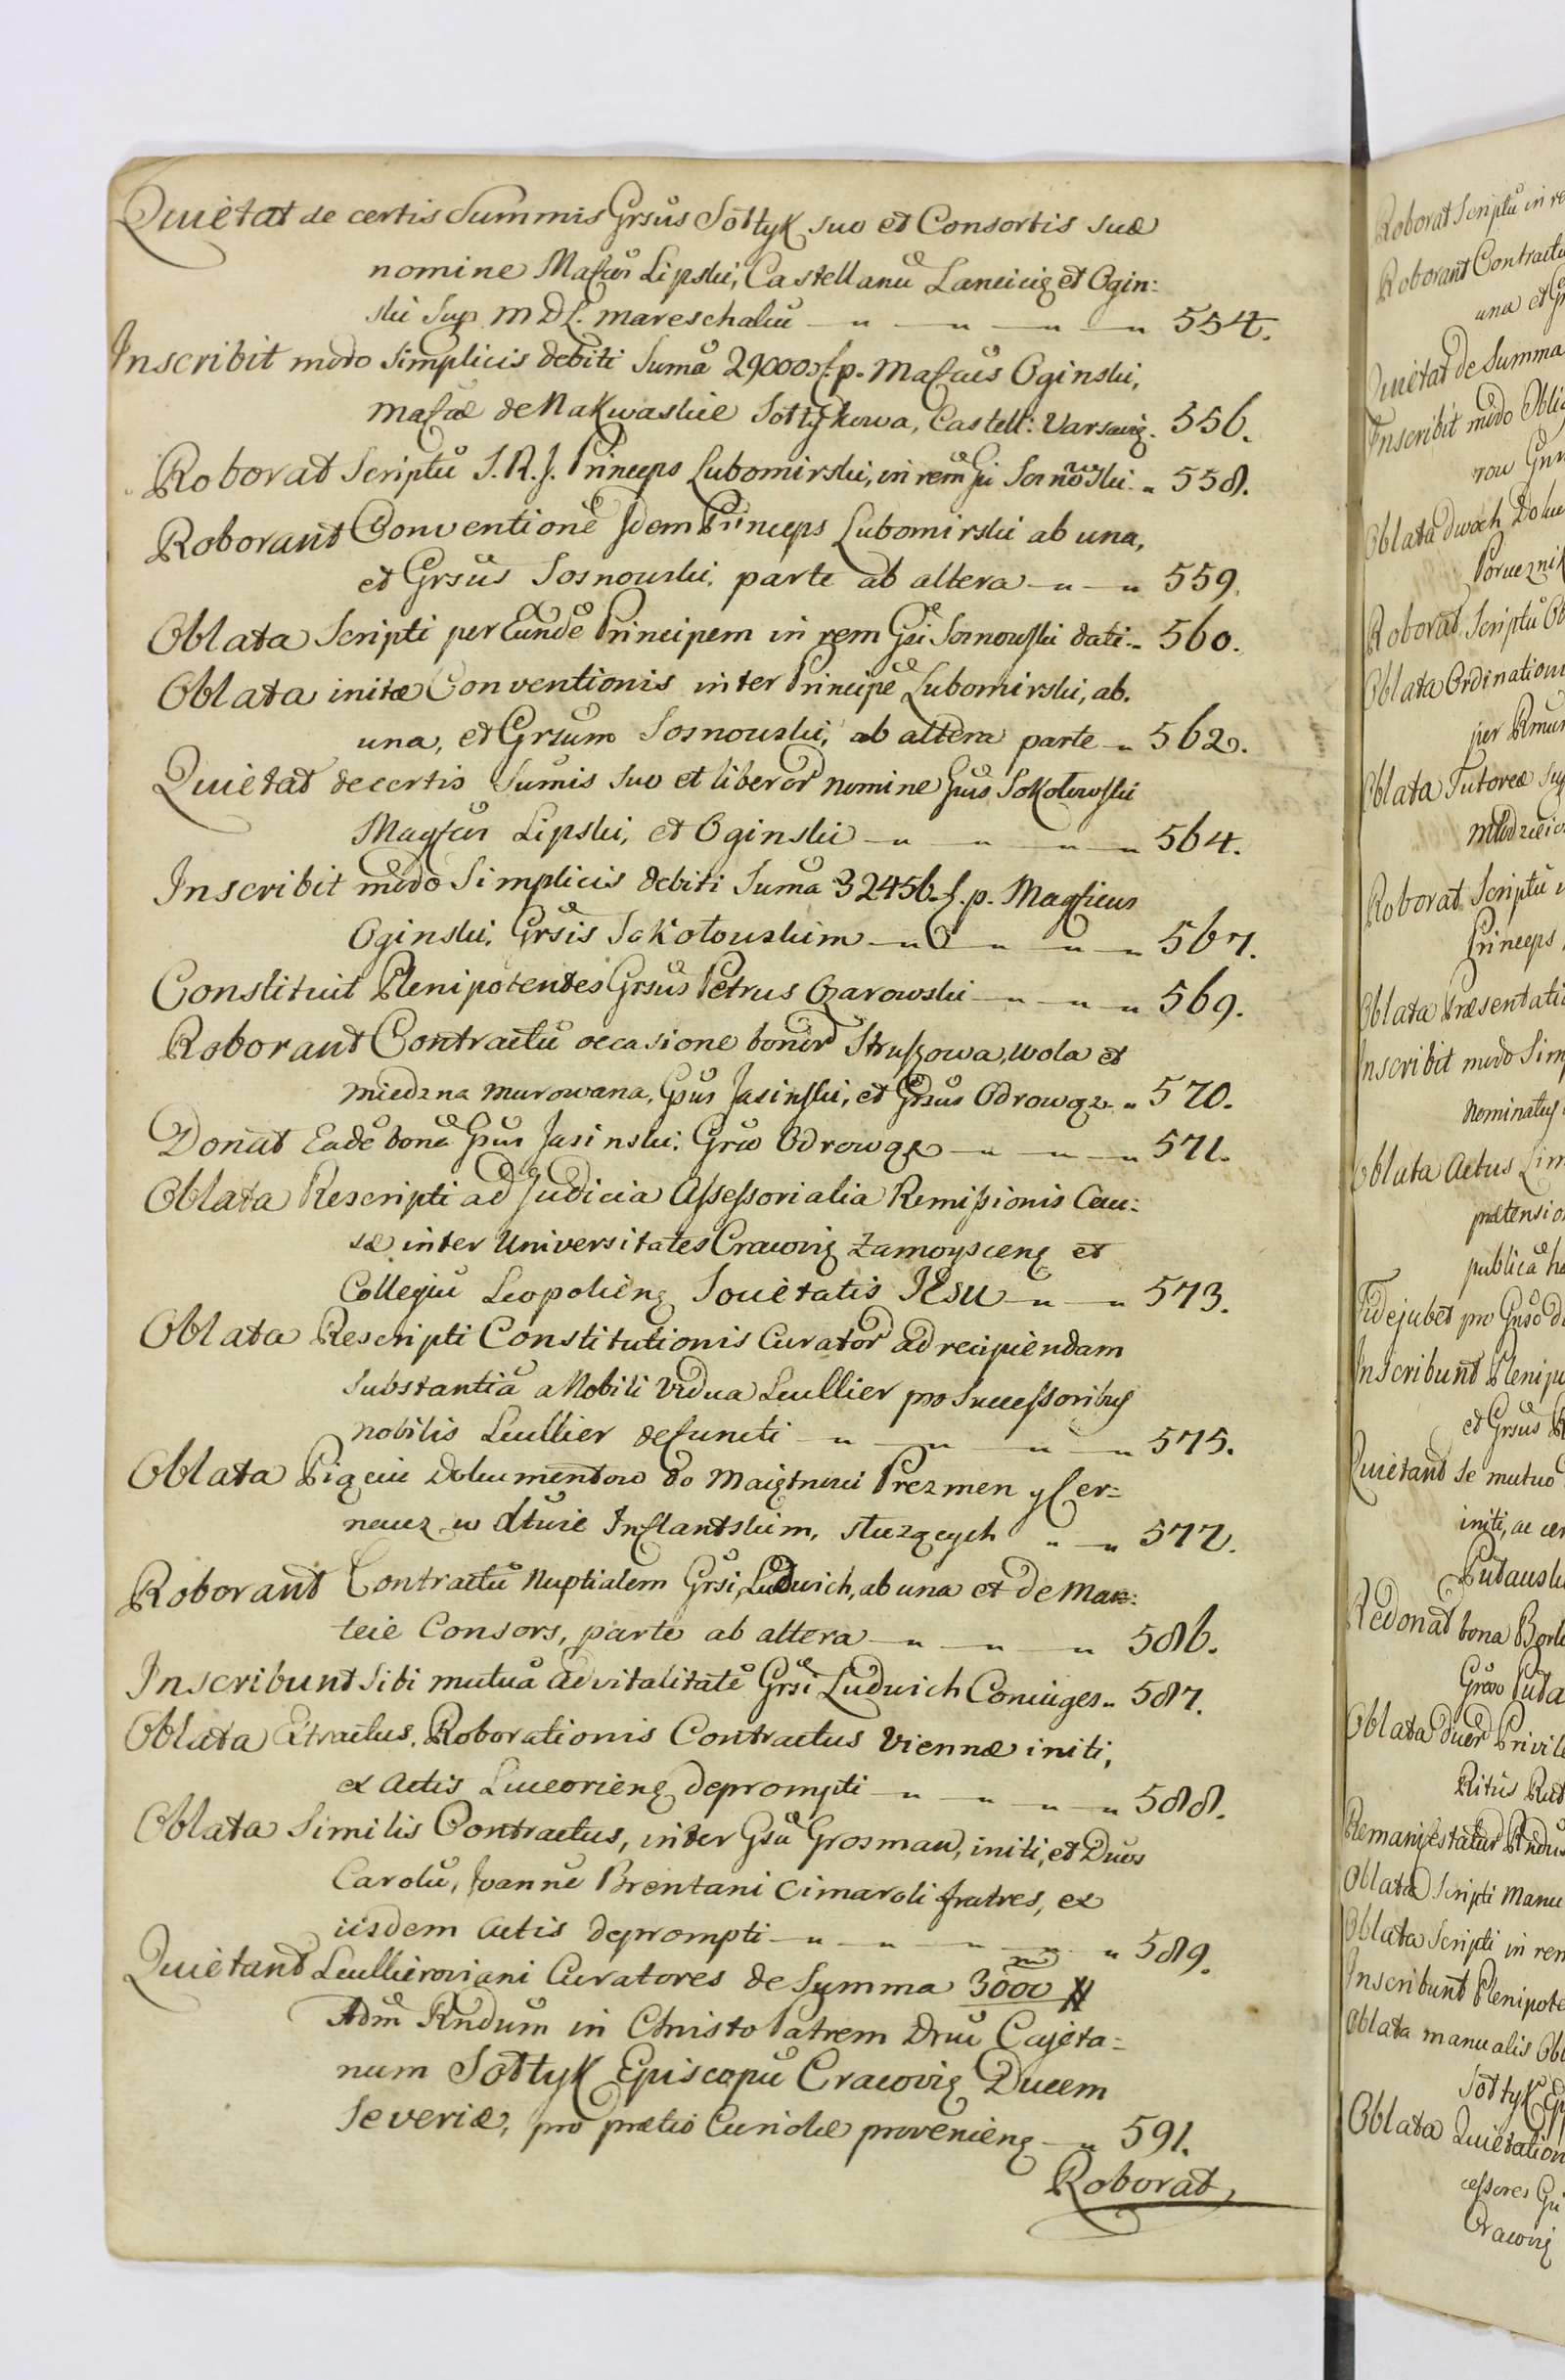 Quietat de certis Summis Grsus Sołtyk suo et Consortis suæ
nomine Mafcus Lipski, Castellanu Lancicię et Ogin:
ski Sup. M D L. mareschalcu 554.
Inscribit modo simplicis debiti Suma 29000 f.p. Mafcus Oginski,
Mafcæ de Nakwaskie Sołtykowa, Castell: Varsavię. 556.
Roborat Scriptu S. R. J. Princeps Lubomirski, in rem Gsi Sosnowski 558.
Roborant Conventione Idem Princeps Lubomirski ab una,
et Grsus Sosnowski, parte ab altera 559.
Oblata Scripti per Eunde Principem in rem Gsi Sosnowski dati 560.
Oblata initæ Conventionis inter Principe Lubomirski, ab.
una, et Grsum Sosnowski, ab altera parte 562.
Quietat de certis Sumis suo et liberor nomine Gsus Sokołowski
Magfcus Lipski, et Oginski 564.
Inscribit modo Simplicis debiti Suma 32456 f.p. Magficus
Oginski, Grsis Sokołowskim 567.
Constituit Plenipotentes Grsus Petrus Ożarowski 569.
Roborant Contractu occasione bonor Strużowa, Wola et
Miedzna murowana, Gsus Jasinski, et Grsus Odrowąz 570.
Donat Eade bona Gsus Jasinski, Grso Odrowąż 571.
Oblata Rescripti ad Judicia Assessorialia Remissionis Cau:
sæ inter Universitates Cracovię Zamoyscenę et
Collegiu Leopolienę Societatis JESU 573.
Oblata Rescripti Constitutionis Curator ad recipiendam
Substantia a Nobili Vidua Leullier pro Successoribus
nobilis Leullier defuncti 575.
Oblata Pięciu Dokumentow do Maiętnosci Prezmen y Cer=
neucz w Xtwie Inflantskim, służących 577.
Roborant Contractu Nuptialem Grsi Ludwich, ab una et de Mas:
teie Consors, parte ab altera 586.
Inscribunt Sibi mutua advitalitate Grsi Ludwich Coniuges 587.
Oblata Extractus, Roborationis Contractus Viennæ initi,
ex Actis Luceorienę deprompti 588.
Oblata Similis Contractus, inter Gsu Grosman, initi, et Duos
Carolu, Joanne Brentani Cimaroli fratres, ex
iisdem Actis deprompti 589.
Quietant Leullieroviani Curatores de Summa 3000 #
Adm Rndum in Christo Patrem Dnu Cajeta=
num Sołtyk Episcopu Cracovię Ducem
Severiæ, pro pretio Curiolæ provenienę 591.
Roborat
Roborat Scriptu in re
Roborant Contractu
una et
Quietat de Summa
Inscribit modo
Oblata dwoch Doku
Roborat Scriptu Ob
Oblata Ordination
Oblata Tutoreæ
Roborat Scriptu
Princeps
Oblata Præsentati
Inscribit modo Sim
Nominatus
Oblata Actus Lim
prætensio
publica
Fidejubet pro
Inscribunt Plenipo
et Grsus
Quietant se mutuo
initi, ac
Redonat bona
Oblata duor Privile
Ritus
Remanifestatur
Oblata Scripti Manu
Oblata Scripti in rem
Inscribunt Plenipote
Oblata manualis Obl
Sołtyk Ep
Oblata Quietation
cessores
Cracovię